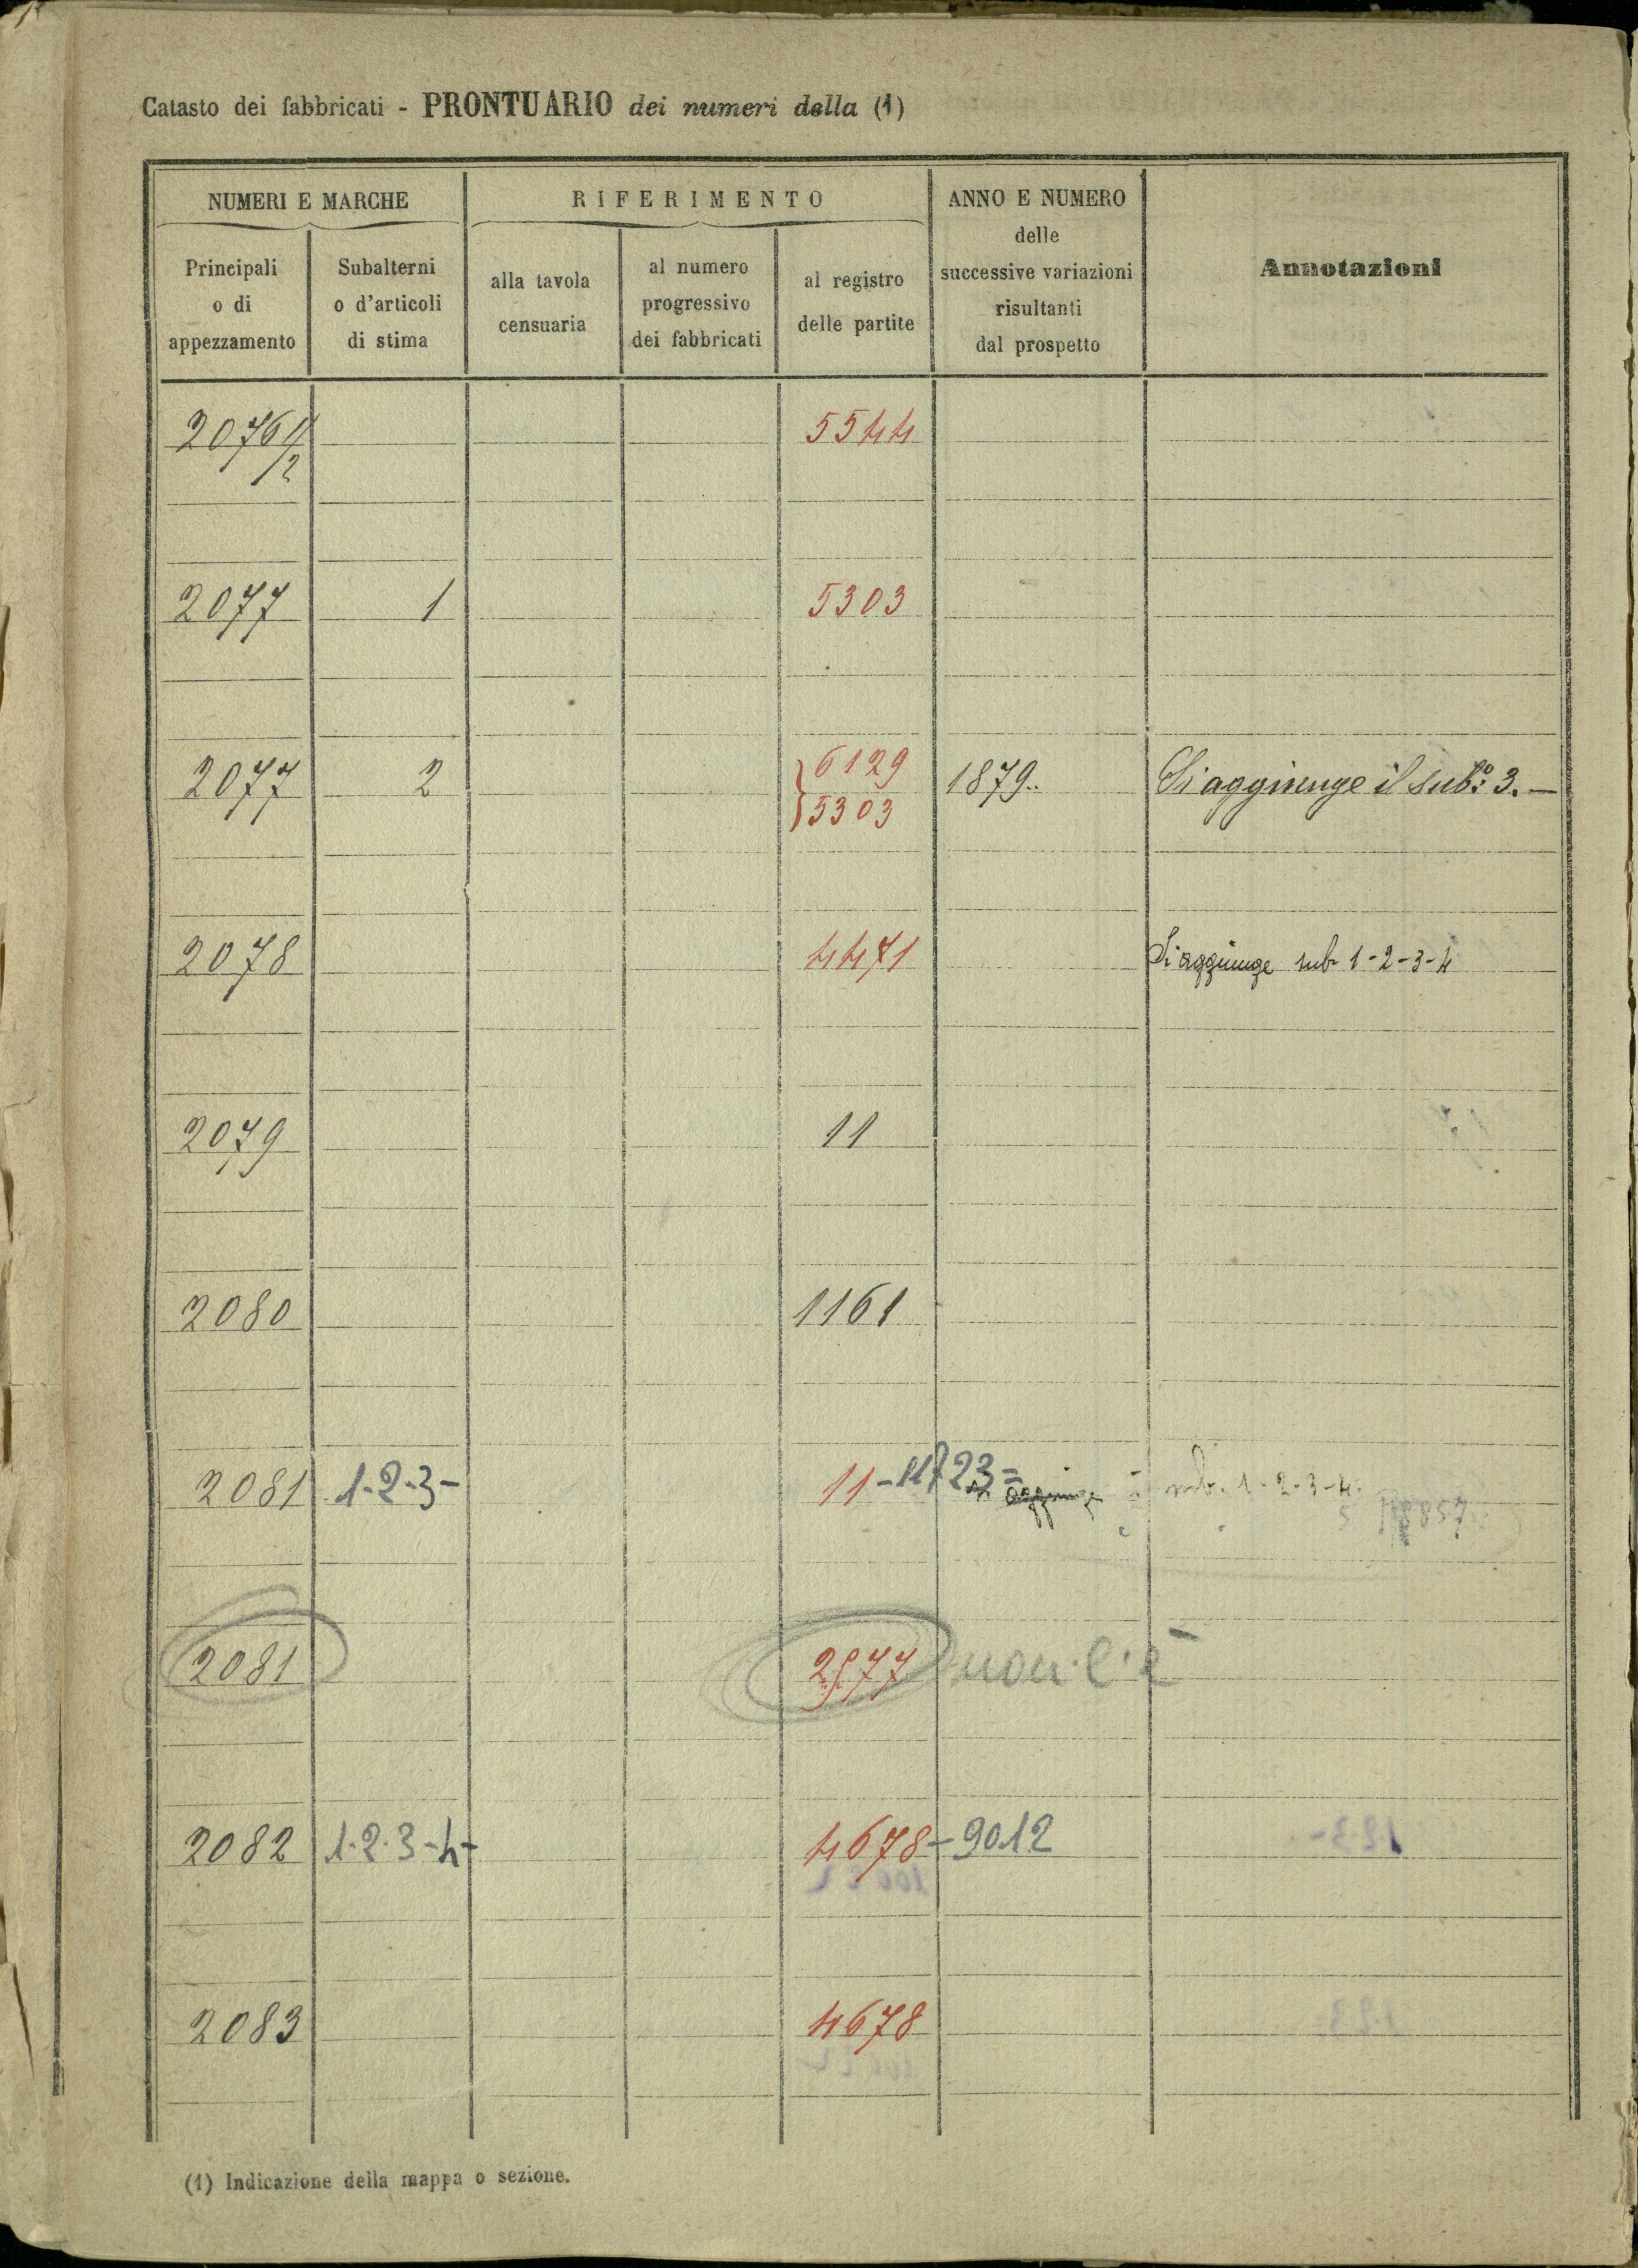 Catasto dei fabbricati - PRONTUARIO dei numeri della (1)
NUMERI E MARCHE
RIFERIMENTO
ANNO E NUMERO
delle
successive variazioni
risultanti
dal prospetto
Annotazioni
Principali
o di
appezzamento
Subalterni
o d'articoli
di stima
alla tavola
censuaria
al numero
progressivo
dei fabbricati
al registro
delle partite
2076 1/2 5544
2077 1 5303
2077 2 6129 1879.. Si aggiunge il subº: 3. —
5303
2078 4471 Si aggiunge sub 1-2-3-4
2079 11
2080 1161
2081 1-2-3- 11- Si aggiunge sub. 1-2-3-4.
2081 2977 non c'è
2082 1-2-3-4- 4678-9012
2083 4678
(1) Indicazione della mappa o sezione.